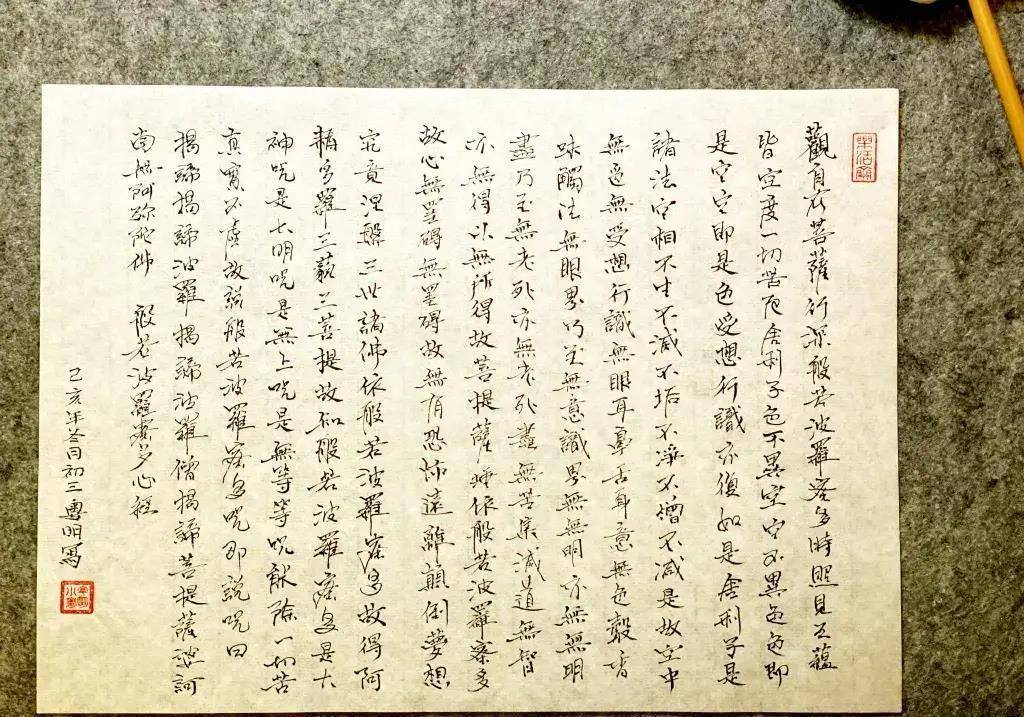 觀自在菩薩行深般若波羅密多時照見五蘊
皆空度一切苦厄舍利子色不異空空不異色色即
是空空即是色受想行識亦復如是舍利子是
諸法空相不生不滅不垢不淨不增不減是故空中
無色無受想行識無眼耳鼻舌身意無色聲香
味觸法無眼界乃至無意識界無無明亦無無明
盡乃至無老死亦無老死盡無苦集滅道無智
亦無得以無所得故菩提薩埵依般若波羅密多
故心無罣碍無罣碍故無有恐怖遠離顛倒夢想
究竟涅槃三世諸佛依般若波羅蜜多故得阿
耨多羅三藐三菩提故知般若波羅蜜多是大
神咒是大明咒是無上咒是無等等咒能除一切苦
真實不虛故說般若波羅蜜多咒即說咒曰
揭諦揭諦波羅揭諦波羅僧揭諦菩提薩婆訶
南無阿弥陀佛 般若波羅蜜多心經
己亥年叁月初三 明寫